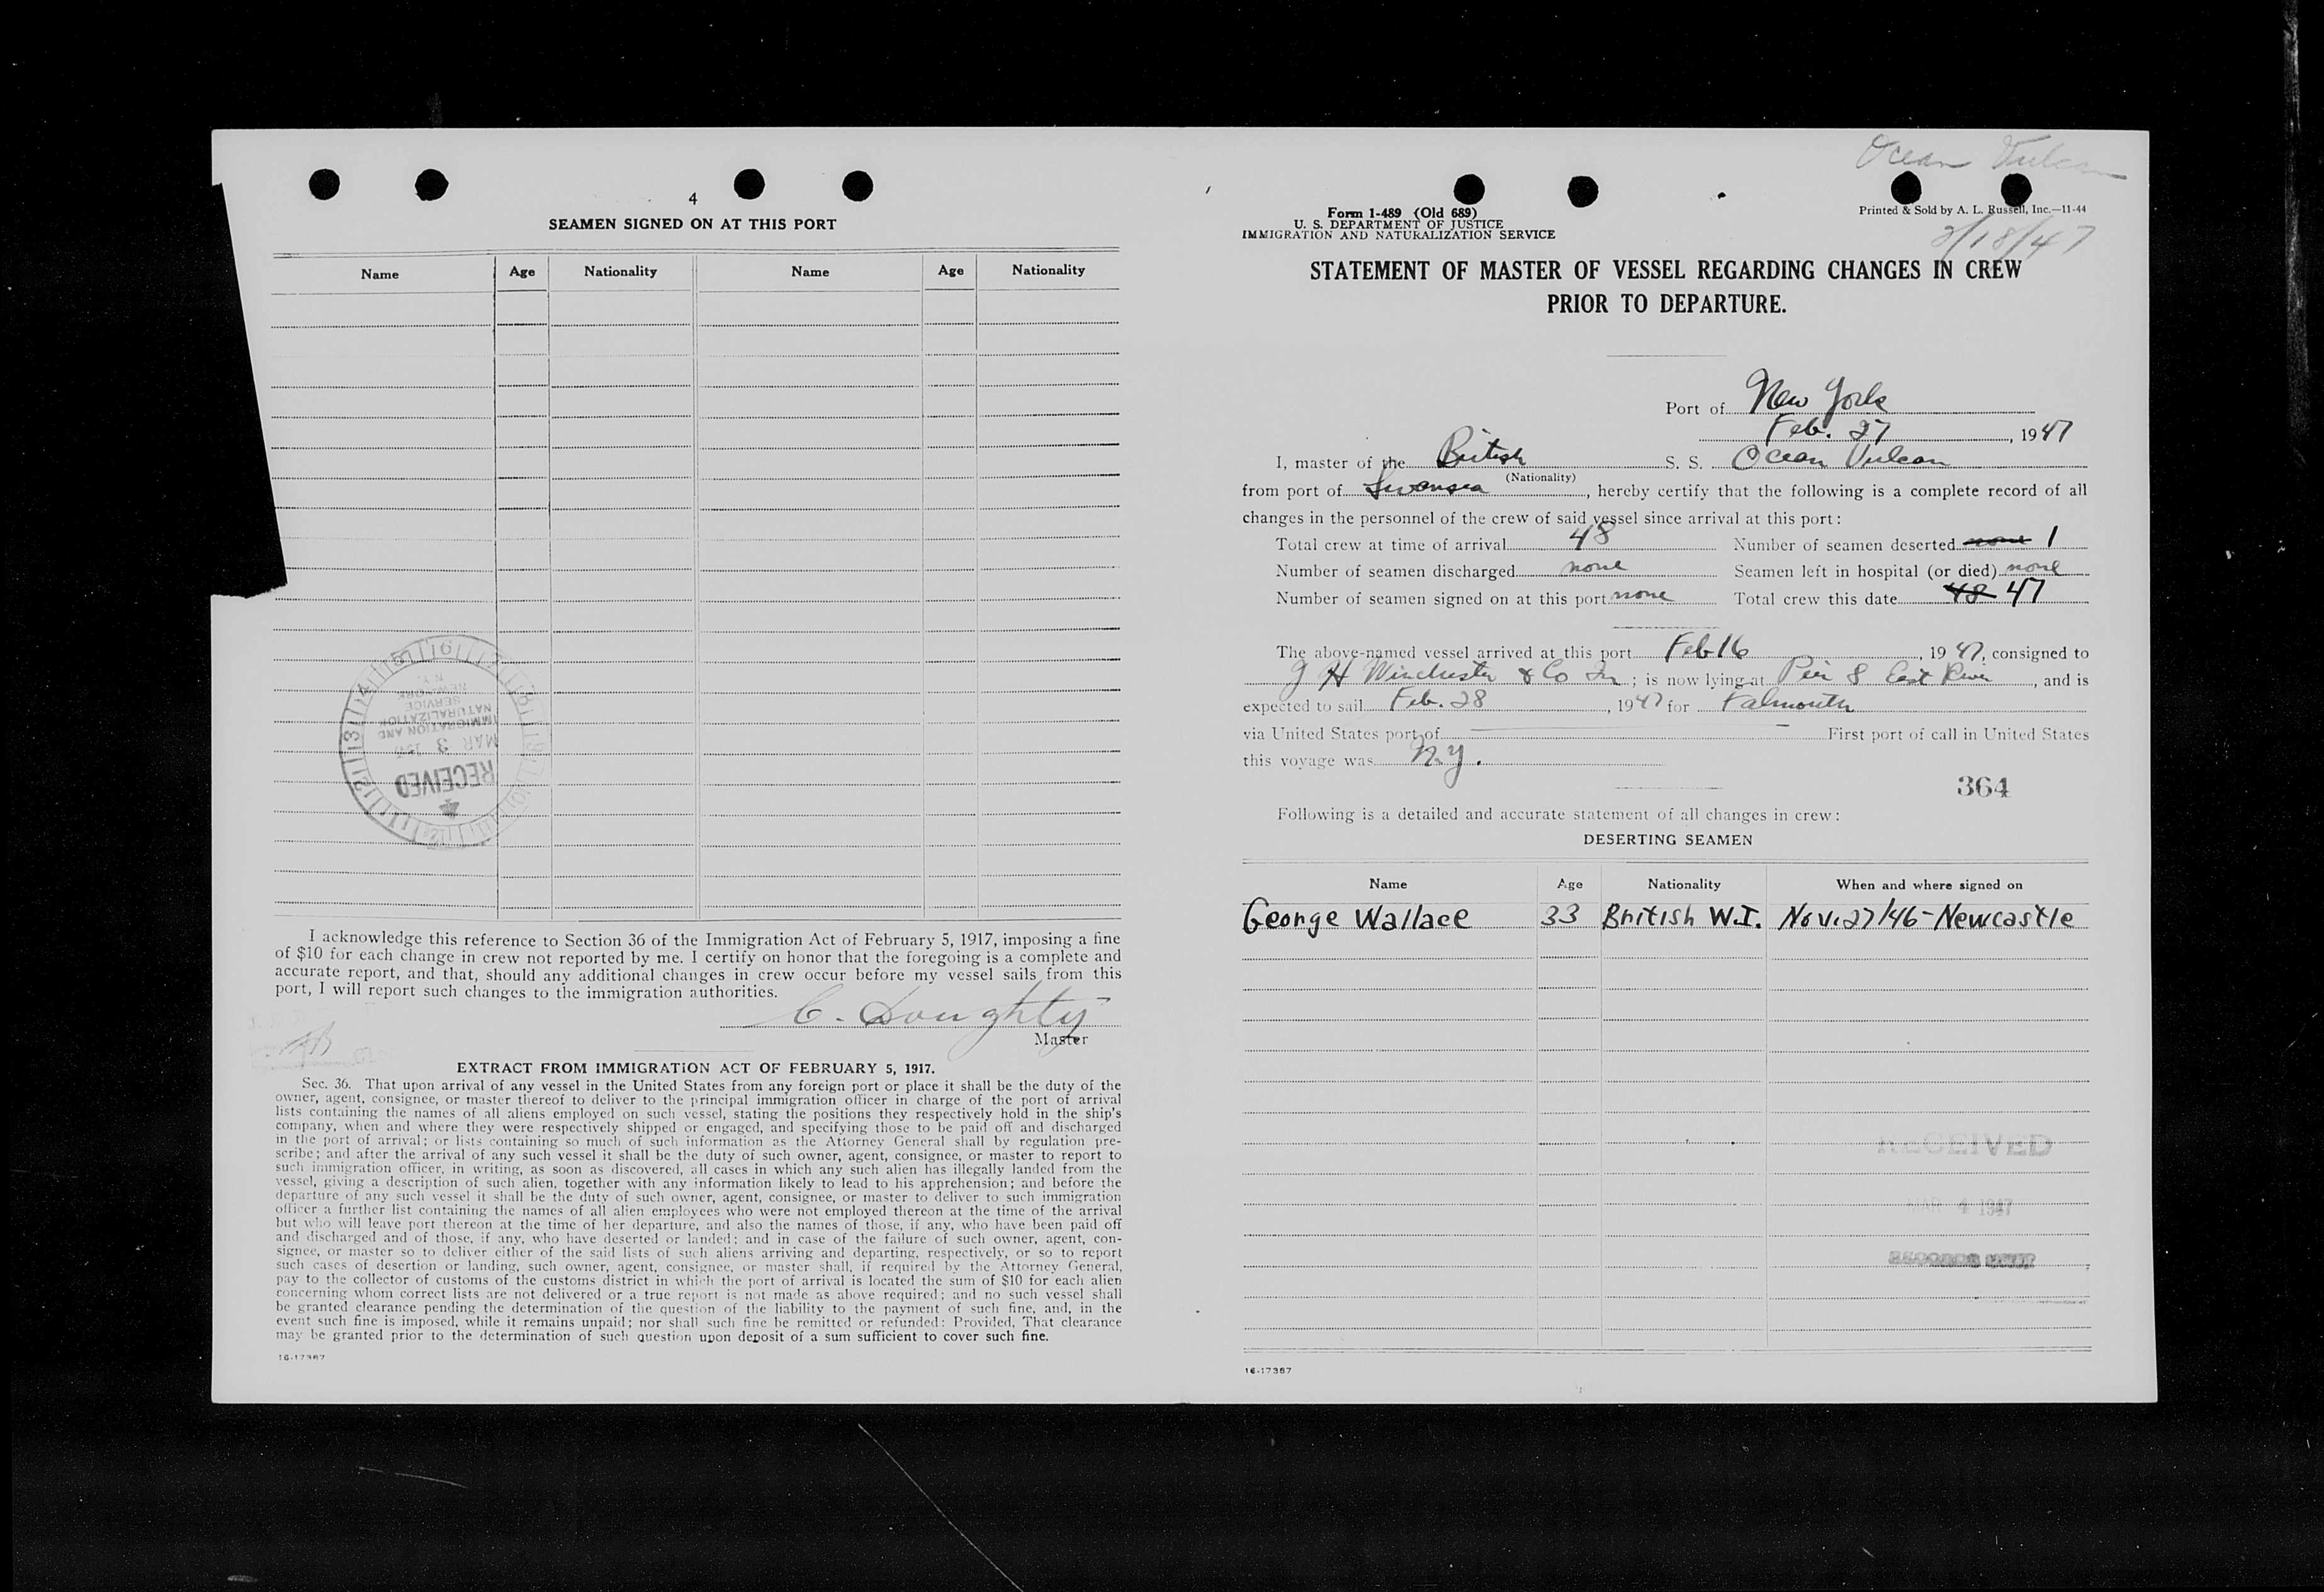 4
SEAMEN SIGNED ON AT THIS PORT
Name Age Nationality Name Age Nationality
16 17 18 19
13 14 15
NEW YORK
N. Y.
IMMIGRATION AND
NATURALIZATION
SERVICE
MAR 3 1947
RECEIVED
I acknowledge this reference to Section 36 of the Immigration Act of February 5, 1917, imposing a fine
of $10 for each change in crew not reported by me. I certify on honor that the foregoing is a complete and
accurate report, and that, should any additional changes in crew occur before my vessel sails from this
port, I will report such changes to the immigration authorities.
C. Doughty
Master
EXTRACT FROM IMMIGRATION ACT OF FEBRUARY 5, 1917.
Sec. 36. That upon arrival of any vessel in the United States from any foreign port or place it shall be the duty of the
owner, agent, consignee, or master thereof to deliver to the principal immigration officer in charge of the port of arrival
lists containing the names of all aliens employed on such vessel, stating the positions they respectively hold in the ship's
company, when and where they were respectively shipped or engaged, and specifying those to be paid off and discharged
in the port of arrival; or lists containing so much of such information as the Attorney General shall by regulation pre-
scribe; and after the arrival of any such vessel it shall be the duty of such owner, agent, consignee, or master to report to
such immigration officer, in writing, as soon as discovered, all cases in which any such alien has illegally landed from the
vessel, giving a description of such alien, together with any information likely to lead to his apprehension; and before the
departure of any such vessel it shall be the duty of such owner, agent, consignee, or master to deliver to such immigration
officer a further list containing the names of all alien employees who were not employed thereon at the time of the arrival
but who will leave port thereon at the time of her departure, and also the names of those, if any, who have been paid off
and discharged and of those, if any, who have deserted or landed; and in case of the failure of such owner, agent, con-
signee, or master so to deliver either of the said lists of such aliens arriving and departing, respectively, or so to report
such cases of desertion or landing, such owner, agent, consignee, or master shall, if required by the Attorney General,
pay to the collector of customs of the customs district in which the port of arrival is located the sum of $10 for each alien
concerning whom correct lists are not delivered or a true report is not made as above required; and no such vessel shall
be granted clearance pending the determination of the question of the liability to the payment of such fine, and, in the
event such fine is imposed, while it remains unpaid; nor shall such fine be remitted or refunded: Provided, That clearance
may be granted prior to the determination of such question upon deposit of a sum sufficient to cover such fine.
16-17387
Ocean Vulcan
Form 1-489 (Old 689)
U. S. DEPARTMENT OF JUSTICE
IMMIGRATION AND NATURALIZATION SERVICE
Printed & Sold by A. L. Russell, Inc.—11-44
2/18/47
STATEMENT OF MASTER OF VESSEL REGARDING CHANGES IN CREW
PRIOR TO DEPARTURE.
Port of New York
Feb. 27, 1947
I, master of the British S. S. Ocean Vulcan
(Nationality)
from port of Swansea, hereby certify that the following is a complete record of all
changes in the personnel of the crew of said vessel since arrival at this port:
Total crew at time of arrival 48 Number of seamen deserted none 1
Number of seamen discharged none Seamen left in hospital (or died) none
Number of seamen signed on at this port none Total crew this date 48 47
The above-named vessel arrived at this port Feb 16, 1947, consigned to
J H Winchester & Co In; is now lying at Pier 8 East River, and is
expected to sail Feb. 28, 1947 for Falmouth
via United States port of — First port of call in United States
this voyage was N.Y.
364
Following is a detailed and accurate statement of all changes in crew:
DESERTING SEAMEN
Name Age Nationality When and where signed on
George Wallace 33 British W.I. Nov. 27/46 - Newcastle
RECEIVED
MAR 4 1947
RECORDS UNIT
16-17387